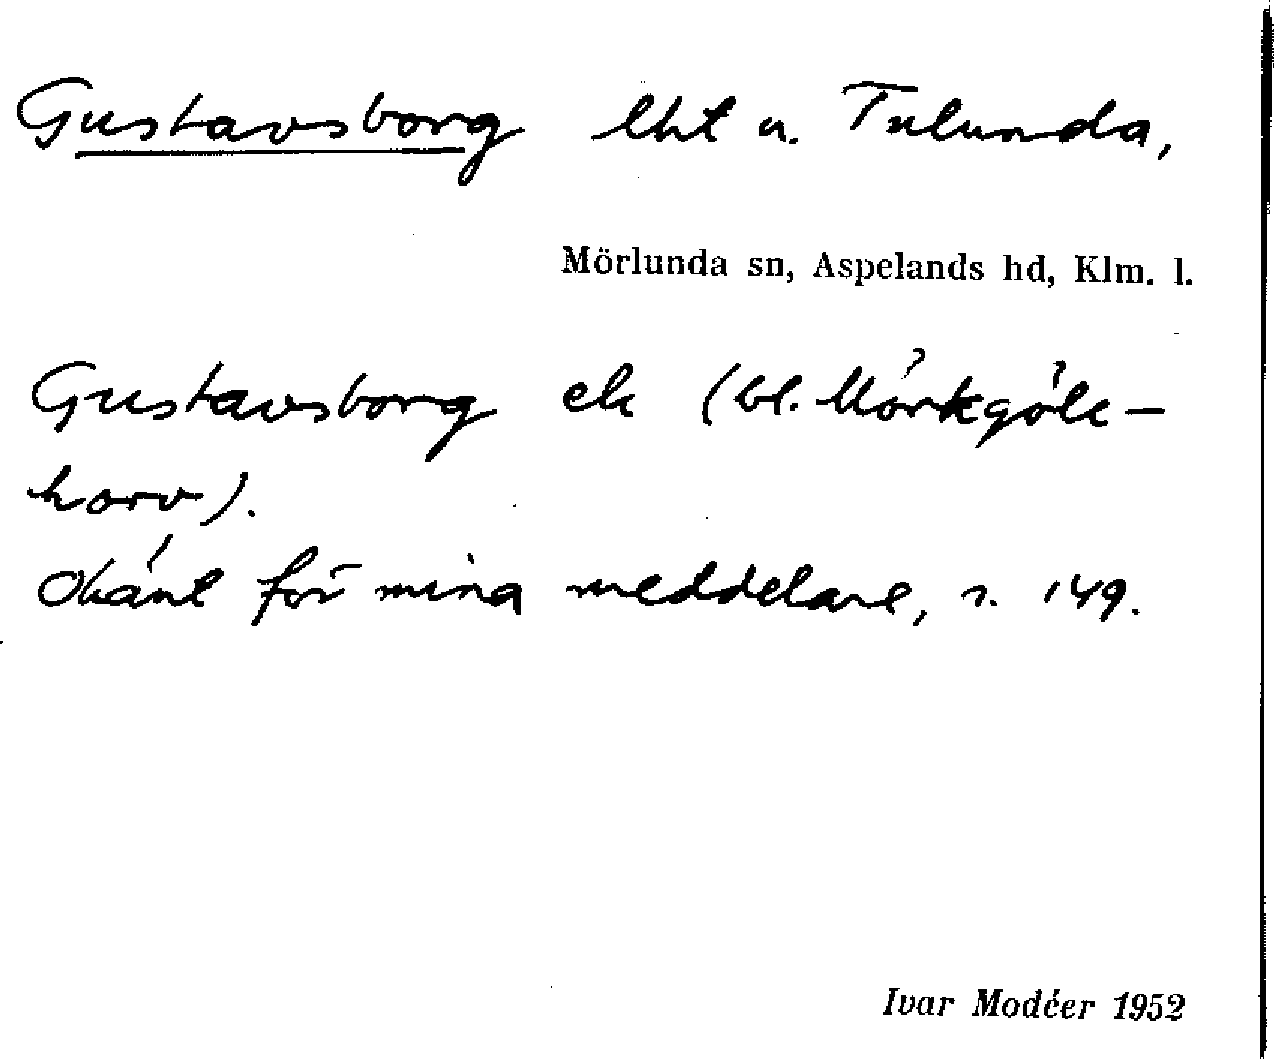 Gustavsborg lht u. Tulunda,
Mörlunda sn, Aspelands hd, Klm. l.
Gustavsborg ek (bl. Mörkgöle-
horv).
Okänt för mina meddelare, s. 149.
Ivar Modéer 1952